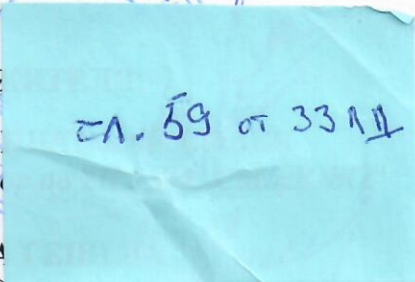 чл. 59 от ЗЗЛД